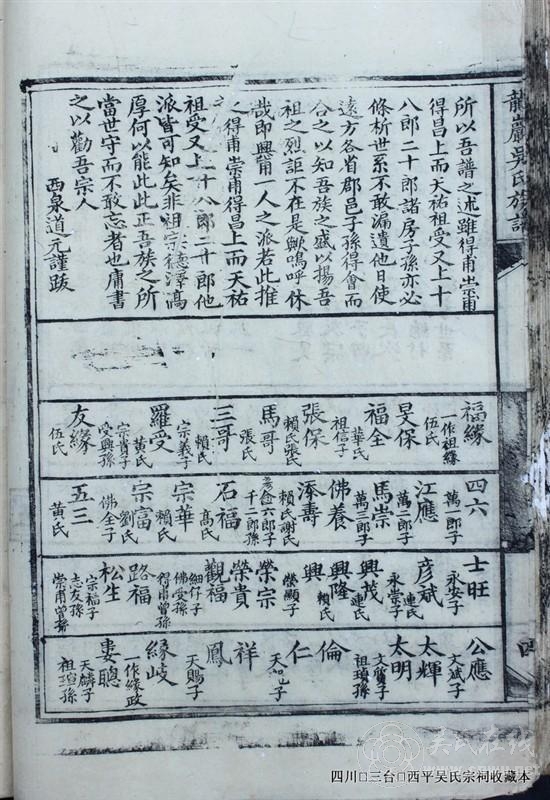 龍巖吳氏族譜
所以吾譜之述雖得甫崇甫
得昌上而天祐祖受又上十
八郎二十郎諸房子孫亦必
條析世系不敢漏遺他日使
遠方各省郡邑子孫得會而
合之以知吾族之盛以揚吾
祖之烈詎不在是歟嗚呼休
哉即興甫一人之派若此推
之得甫崇甫得昌上而天祐
祖受又上十八郎二十郎他
派皆可知矣非祖宗德澤高
厚何以能此此正吾族之所
當世守而不敢忘者也庸書
之以勸吾宗人
西泉道元謹跋
福緣
一作祖緣
伍氏
旻保
福全
葉氏
祖信子
張保
賴氏張氏
馬哥
張氏
三哥
賴氏
宗義子
羅受
黃氏
宗貴子
受興孫
友緣
伍氏
四六
萬一郎子
江應
萬二郎子
馬崇
萬三郎子
佛養
添壽
賴氏謝氏
六郎子
千二郎孫
石福
高氏
宗華
賴氏
宗富
劉氏
佛全子
五三
黃氏
士旺
永安子
彦斌
連氏
永崇子
興茂
連氏
興隆
賴氏
興
榮顯子
榮宗
榮貴
觀福
細仔子
佛受孫
得甫曾孫
路福
松生
宗福子
志友孫
崇甫曾孫
公應
文斌子
太輝
太明
文質子
祖瓊孫
倫
仁
天子
祥
鳳
天賜子
緣岐
一作緣政
婁聰
天麟子
祖瑄孫
四
吳氏在線
四川三台西平吳氏宗祠收藏本